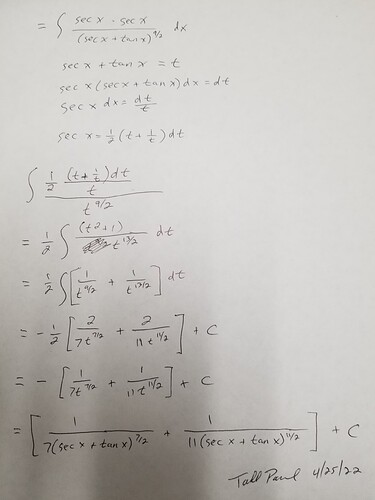 = ∫ (sec x · sec x)/(sec x + tan x)^(9/2) dx
sec x + tan x = t
sec x (sec x + tan x) dx = dt
sec x dx = dt/t
sec x = 1/2 (t + 1/t) dt
∫ (1/2 (t + 1/t) dt / t) / t^(9/2)
= 1/2 ∫ (t² + 1)/t^(13/2) dt
= 1/2 ∫ [1/t^(9/2) + 1/t^(13/2)] dt
= - 1/2 [2/7t^(7/2) + 2/11t^(11/2)] + C
= - [1/7t^(7/2) + 1/11t^(11/2)] + C
= [1/7(sec x + tan x)^(7/2) + 1/11(sec x + tan x)^(11/2)] + C
Tall Paul 4/25/22